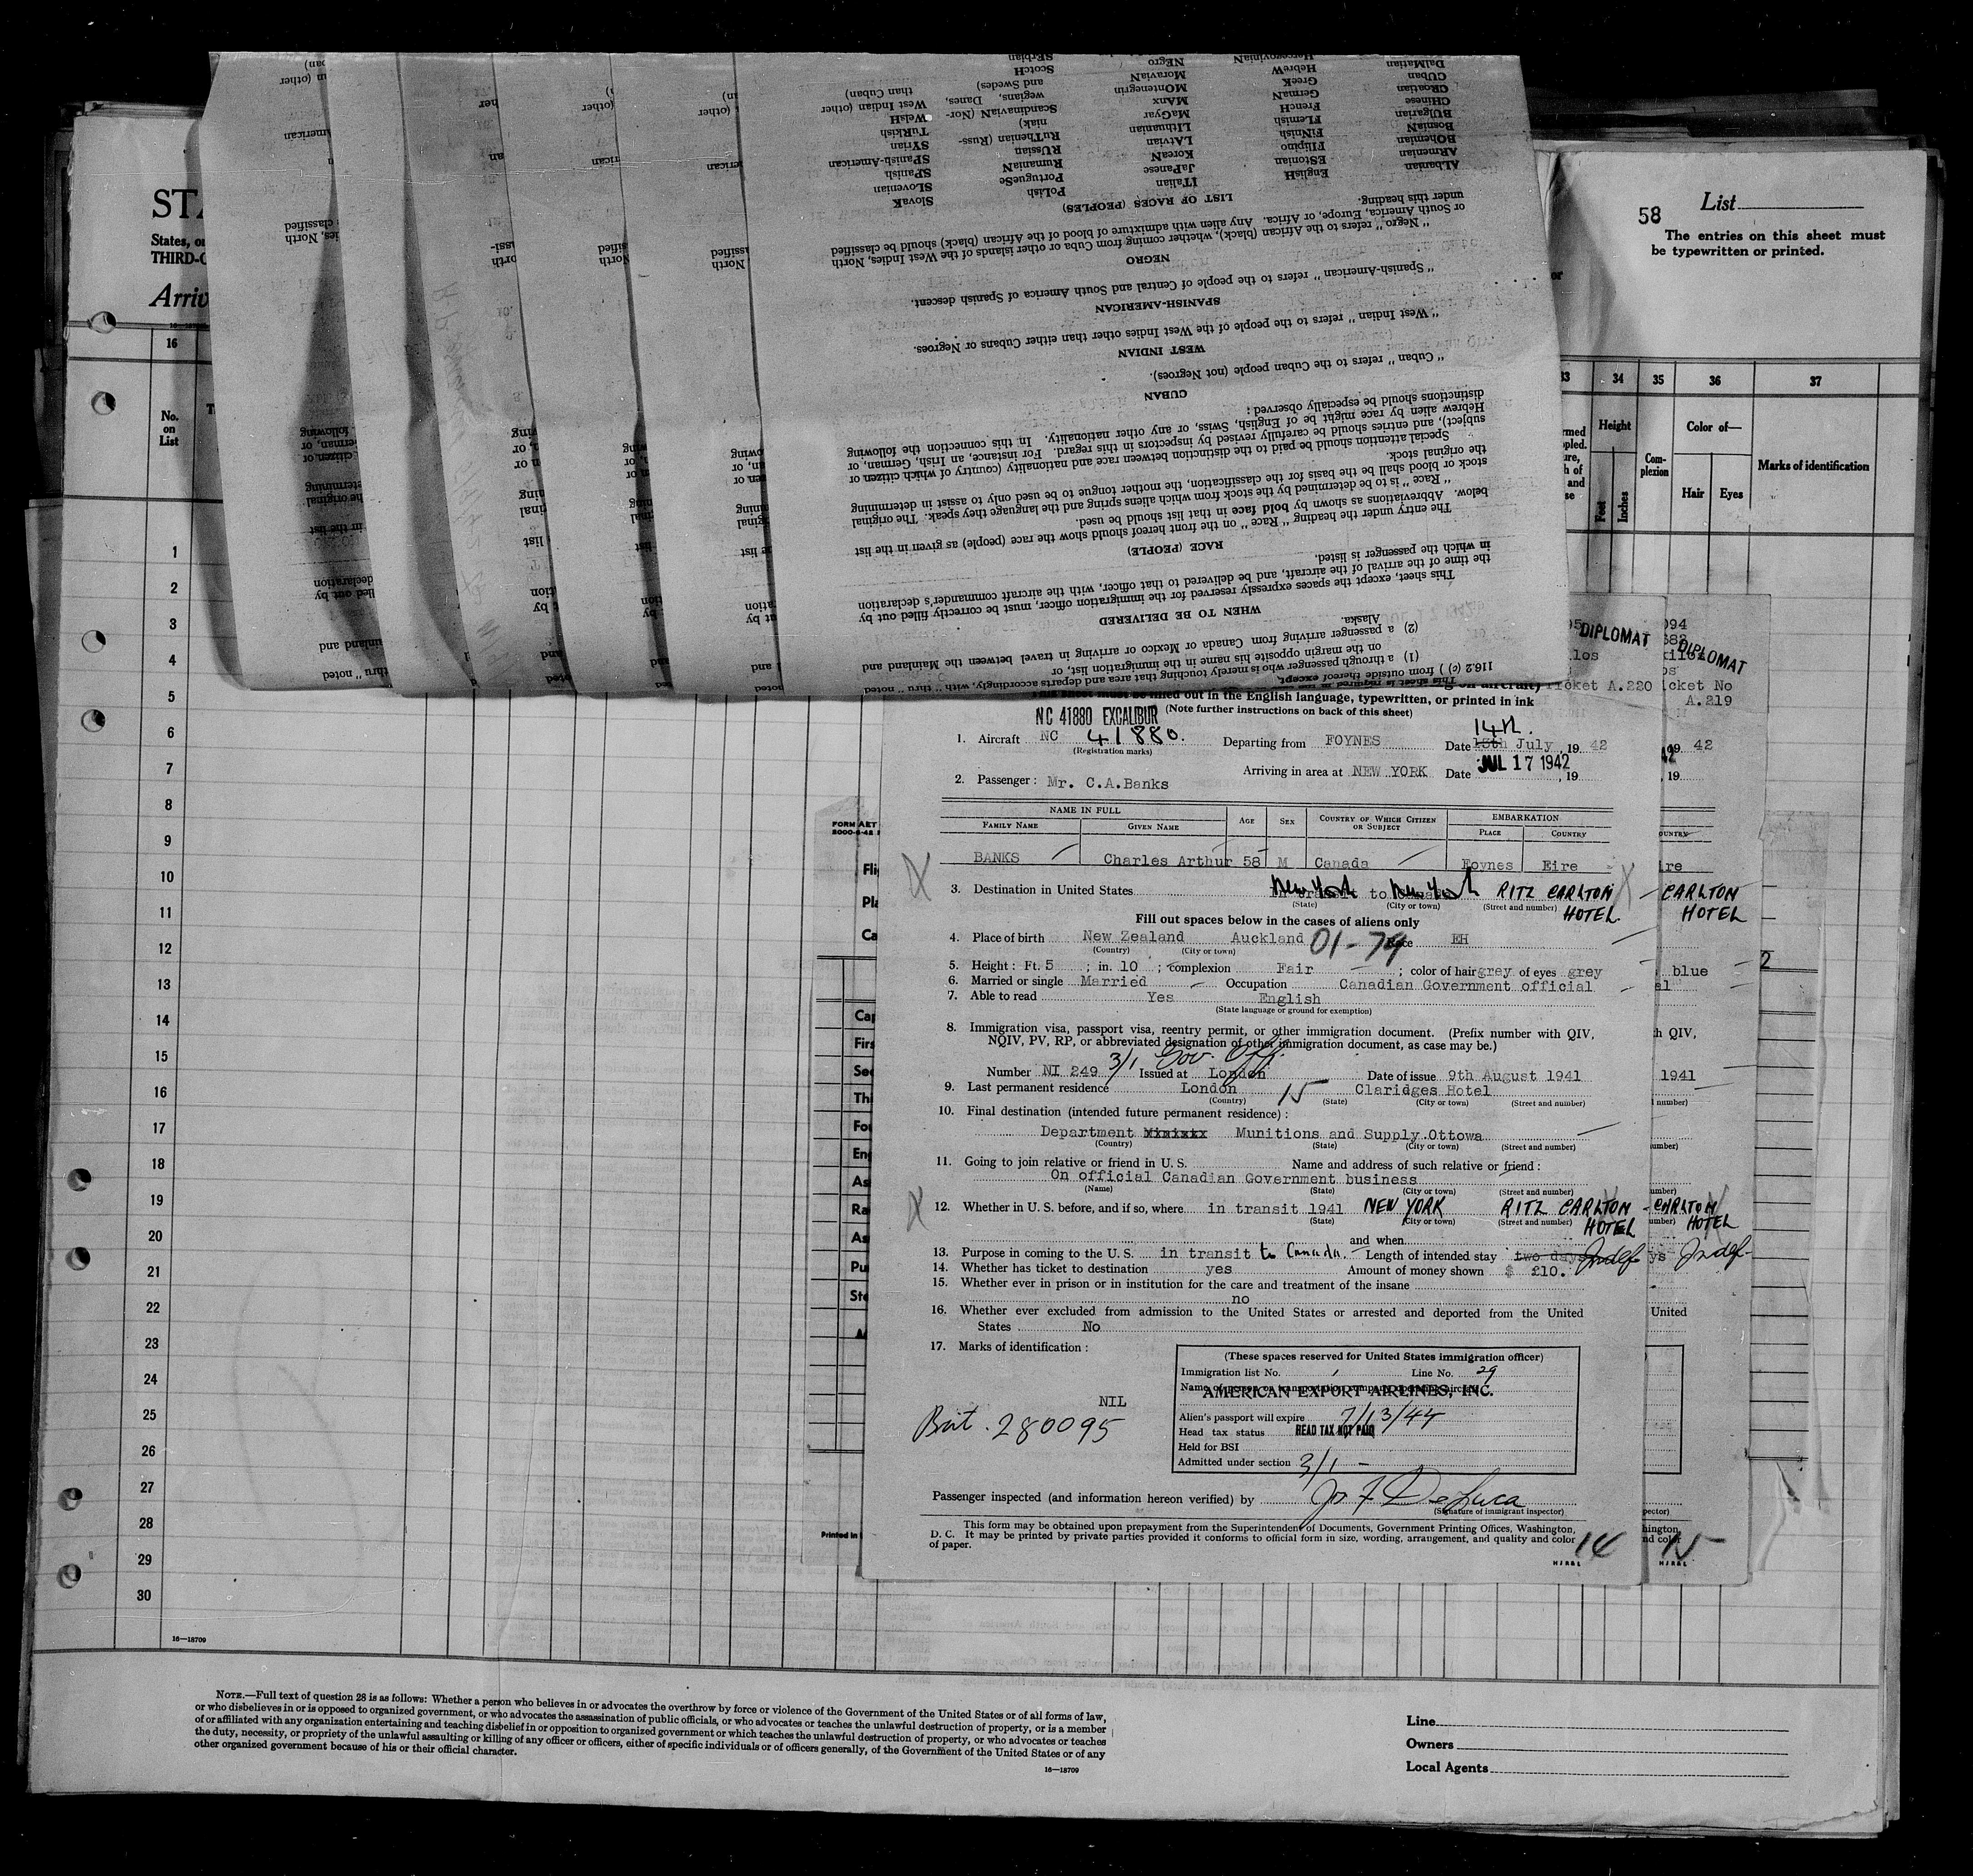 58
List
The entries on this sheet must
be typewritten or printed.
STA
States, or
THIRD-C
Arriv
16
34
35
36
37
No.
on
List
Height
Feet
Inches
Com-
plexion
Color of—
Hair
Eyes
Marks of identification
1
2
3
4
5
6
7
8
9
10
11
12
13
14
15
16
17
18
19
20
21
22
23
24
25
26
27
28
29
30
16—18709
DIPLOMAT
DIPLOMAT
Ticket A.220
icket No
A.219
116.2 (c) ) from outside thereof except,
(1) a through passenger who is merely touching that area and departs accordingly, with "thru" noted
on the margin opposite his name in the immigration list, or
(2) a passenger arriving from Canada or Mexico or arriving in travel between the Mainland and
Alaska.
WHEN TO BE DELIVERED
This sheet, except the spaces expressly reserved for the immigration officer, must be correctly filled out by
the time of the arrival of the aircraft, and be delivered to that officer, with the aircraft commander's declaration
in which the passenger is listed.
RACE (PEOPLE)
The entry under the heading "Race" on the front hereof should show the race (people) as given in the list
below. Abbreviations as shown by bold face in that list should be used.
"Race" is to be determined by the stock from which aliens spring and the language they speak. The original
stock or blood shall be the basis for the classification, the mother tongue to be used only to assist in determining
the original stock.
Special attention should be paid to the distinction between race and nationality (country of which citizen or
subject), and entries should be carefully revised by inspectors in this regard. For instance, an Irish, German, or
Hebrew alien by race might be of English, Swiss, or any other nationality. In this connection the following
distinctions should be especially observed:
CUBAN
"Cuban" refers to the Cuban people (not Negroes).
WEST INDIAN
"West Indian" refers to the people of the West Indies other than either Cubans or Negroes.
SPANISH-AMERICAN
"Spanish-American" refers to the people of Central and South America of Spanish descent.
NEGRO
"Negro" refers to the African (black), whether coming from Cuba or other islands of the West Indies, North
or South America, Europe, or Africa. Any alien with admixture of blood of the African (black) should be classified
under this heading.
LIST OF RACES (PEOPLES)
ALbanian EnglisH ITalian PoLish SlovaK
ARmenian EStonian JaPanese PortugueSe SLovenian
BOhemian FIlipino KoreaN RumaniaN SPanish
BosniaN FiNnish LAtvian RUssian SPanish-American
BUlgarian FLemish LIthuanian RuThenian (Russ- SYrian
CHinese FrencH MaGyar niak) TuRkish
CRoatian GermaN MAnx ScandinaviaN (Nor- WelsH
CUban GreeK MOntenegrin wegians, Danes, West Indian (other
DalMatian HebreW MoraviaN and Swedes) than Cuban)
HercegovinianN NEgro ScotcH
SErbian
This sheet must be filled out in the English language, typewritten, or printed in ink
(Note further instructions on back of this sheet)
NC 41880 EXCALIBUR
1. Aircraft NC 41880. Departing from FOYNES Date 15th 14th. July, 19 42
(Registration marks)
Arriving in area at NEW YORK Date JUL 17 1942, 19
2. Passenger: Mr. C.A.Banks
NAME IN FULL
FAMILY NAME
GIVEN NAME
AGE
SEX
COUNTRY OF WHICH CITIZEN
OR SUBJECT
EMBARKATION
PLACE
COUNTRY
BANKS Charles Arthur 58 M Canada Foynes Eire
3. Destination in United States New York New York RITZ CARLTON
HOTEL.
(State) (City or town) (Street and number)
CARLTON
HOTEL
Fill out spaces below in the cases of aliens only
4. Place of birth New Zealand Auckland 01-79 Race EH
(Country) (City or town)
5. Height: Ft. 5; in. 10; complexion Fair; color of hair grey of eyes grey
blue
6. Married or single Married Occupation Canadian Government official
7. Able to read Yes English
(State language or ground for exemption)
8. Immigration visa, passport visa, reentry permit, or other immigration document. (Prefix number with QIV,
NQIV, PV, RP, or abbreviated designation of other immigration document, as case may be.)
3/1 Gov. Off.
Number NI 249 Issued at London Date of issue 9th August 1941
1941
9. Last permanent residence London 15 Claridges Hotel
(Country) (State) (City or town) (Street and number)
10. Final destination (intended future permanent residence):
Department Munitions and Supply.Ottowa
(Country) (State) (City or town) (Street and number)
11. Going to join relative or friend in U. S. Name and address of such relative or friend:
On official Canadian Government business
(Name) (State) (City or town) (Street and number)
12. Whether in U. S. before, and if so, where in transit 1941 NEW YORK RITZ CARLTON
HOTEL
(State) (City or town) (Street and number)
CARLTON
HOTEL
and when
13. Purpose in coming to the U. S. in transit to Canada. Length of intended stay two days Indef
Indef-
14. Whether has ticket to destination yes Amount of money shown $ £10.
15. Whether ever in prison or in institution for the care and treatment of the insane
no
16. Whether ever excluded from admission to the United States or arrested and deported from the United
States No
17. Marks of identification:
NIL
Brit. 280095
(These spaces reserved for United States immigration officer)
Immigration list No. 1 Line No. 29
AMERICAN EXPORT AIRLINES, INC.
Alien's passport will expire 7/13/44
Head tax status HEAD TAX NOT PAID
Held for BSI
Admitted under section 3/1 -
Passenger inspected (and information hereon verified) by Jos F DeLuca
(Signature of immigrant inspector)
This form may be obtained upon prepayment from the Superintendent of Documents, Government Printing Offices, Washington,
D. C. It may be printed by private parties provided it conforms to official form in size, wording, arrangement, and quality and color
of paper.
14
15
H J R & L
H J R & L
NOTE.—Full text of question 28 is as follows: Whether a person who believes in or advocates the overthrow by force or violence of the Government of the United States or of all forms of law,
or who disbelieves in or is opposed to organized government, or who advocates the assassination of public officials, or who advocates or teaches the unlawful destruction of property, or is a member
of or affiliated with any organization entertaining and teaching disbelief in or opposition to organized government or which teaches the unlawful destruction of property, or who advocates or teaches
the duty, necessity, or propriety of the unlawful assaulting or killing of any officer or officers, either of specific individuals or of officers generally, of the Government of the United States or of any
other organized government because of his or their official character.
16—18709
Line
Owners
Local Agents